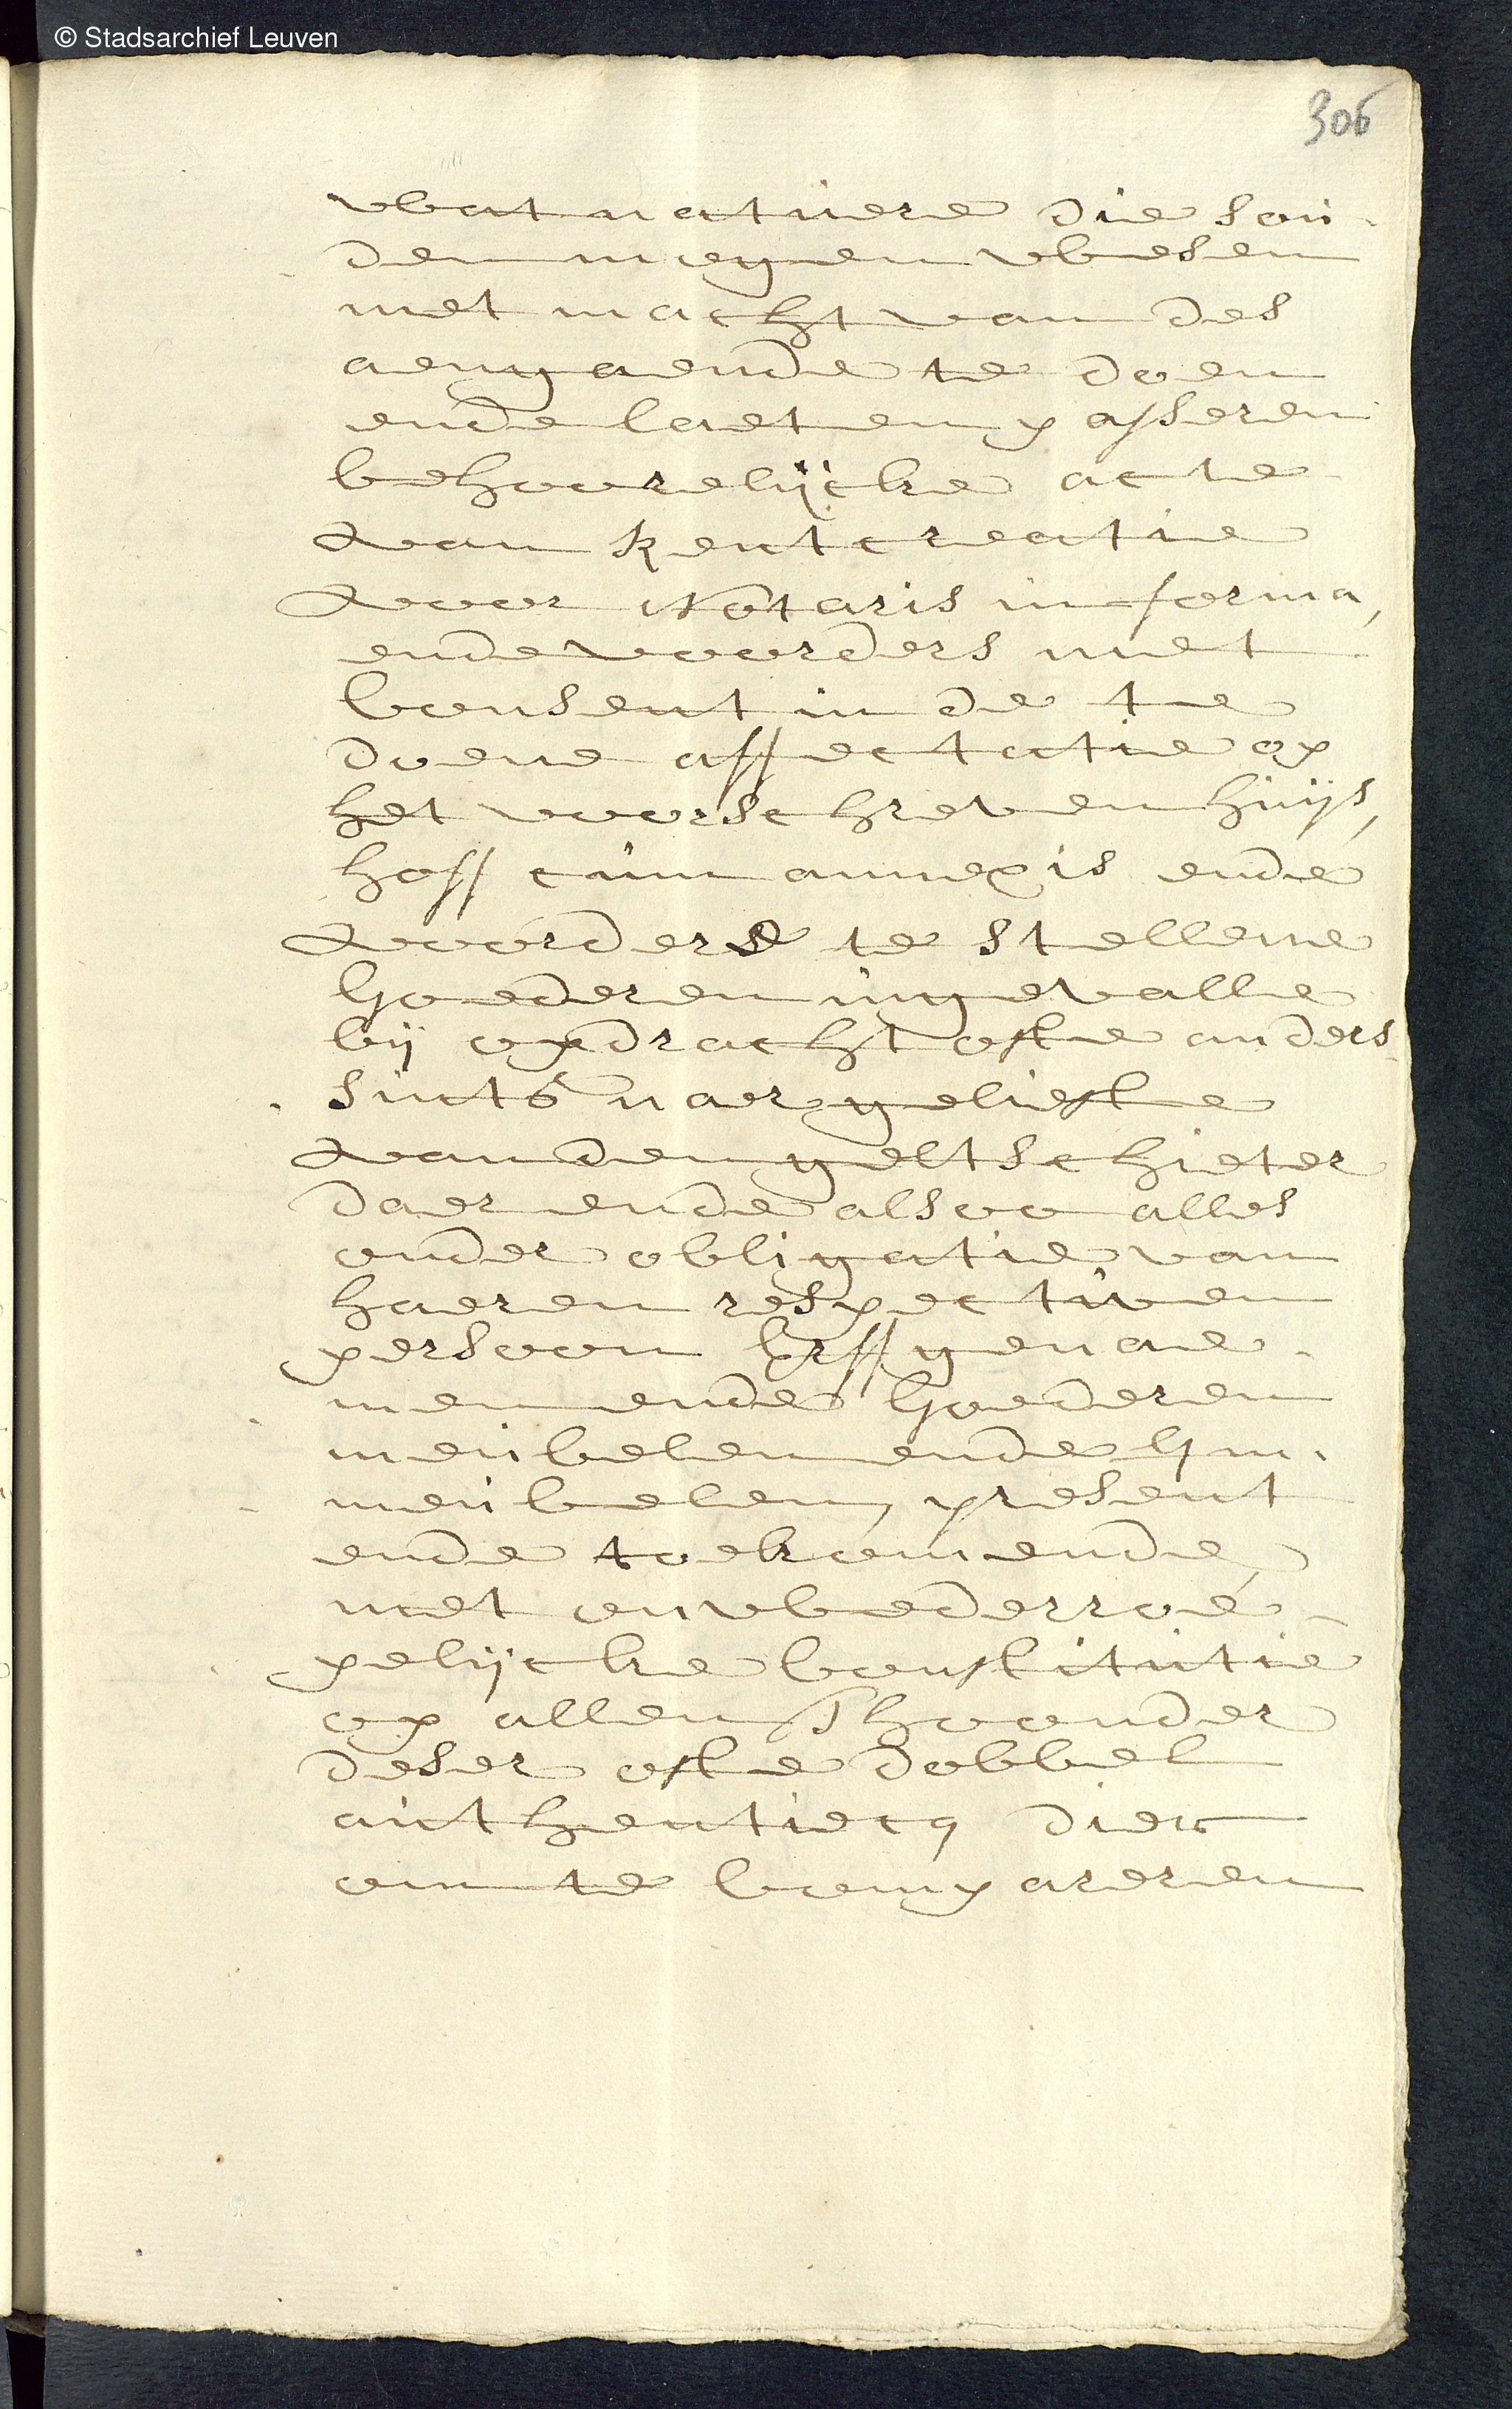 © Stadsarchief Leuven
306
wat natuere die sou-
den mogen wesen
met macht van des
aengaende te doen
ende laeten passeren
behoorelijcke acte
van Rentcreatie
voor Notaris in forma,
ende voorders met
Consent in de te
doene affectatie op
het voorschreven huijs,
hoff cum annexis ende
voorders te stellene
Goederen ingevalle
bij opdracht ofte anders
sints naer geliefte
van den geltschieter
daer ende alsoo alles
onder obligatie van
haeren respectiven
persoon Erffgenae-
men ende Goederen
meubelen ende Im-
meubelen, present
ende toekomende,
met onwederroe-
pelijcke Constitutie
op allen Thoonder
deser ofte dobbel
authentiecq dier
om te Compareren